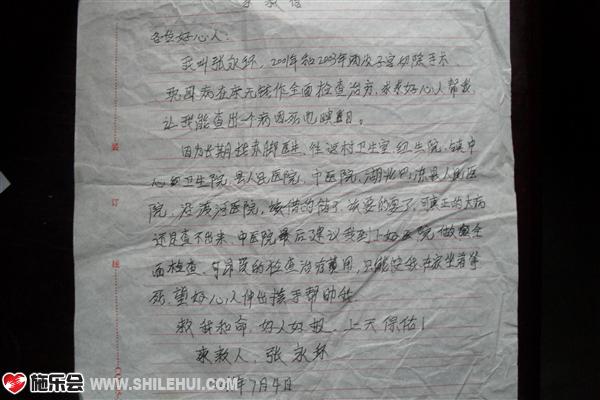 求救信
各位好心人:
我叫张永环,2001年和2003年两次子宫切除手术
现因病在床无钱作全面检查治疗,求求好心人帮我
让我能查出个病因死也瞑目。
因为长期找赤脚医生、往返村卫生室、红生院、镇中
心卫生院、县人民医院、中医院、湖北巴东县人民医
院、没流河医院,该借的借了、该要的要了,可真正的大病
还是查不出来、中医院最后建议我到上好医院做全
面检查、可昂贵的检查治疗费用,只能使我在家坐着等
死,望好心人伸出援手帮助我
救我和命 好人好报 上天保佑!
求救人:张永环
年7月4日
施乐会
WWW.SHILEHUI.COM
装
订
线